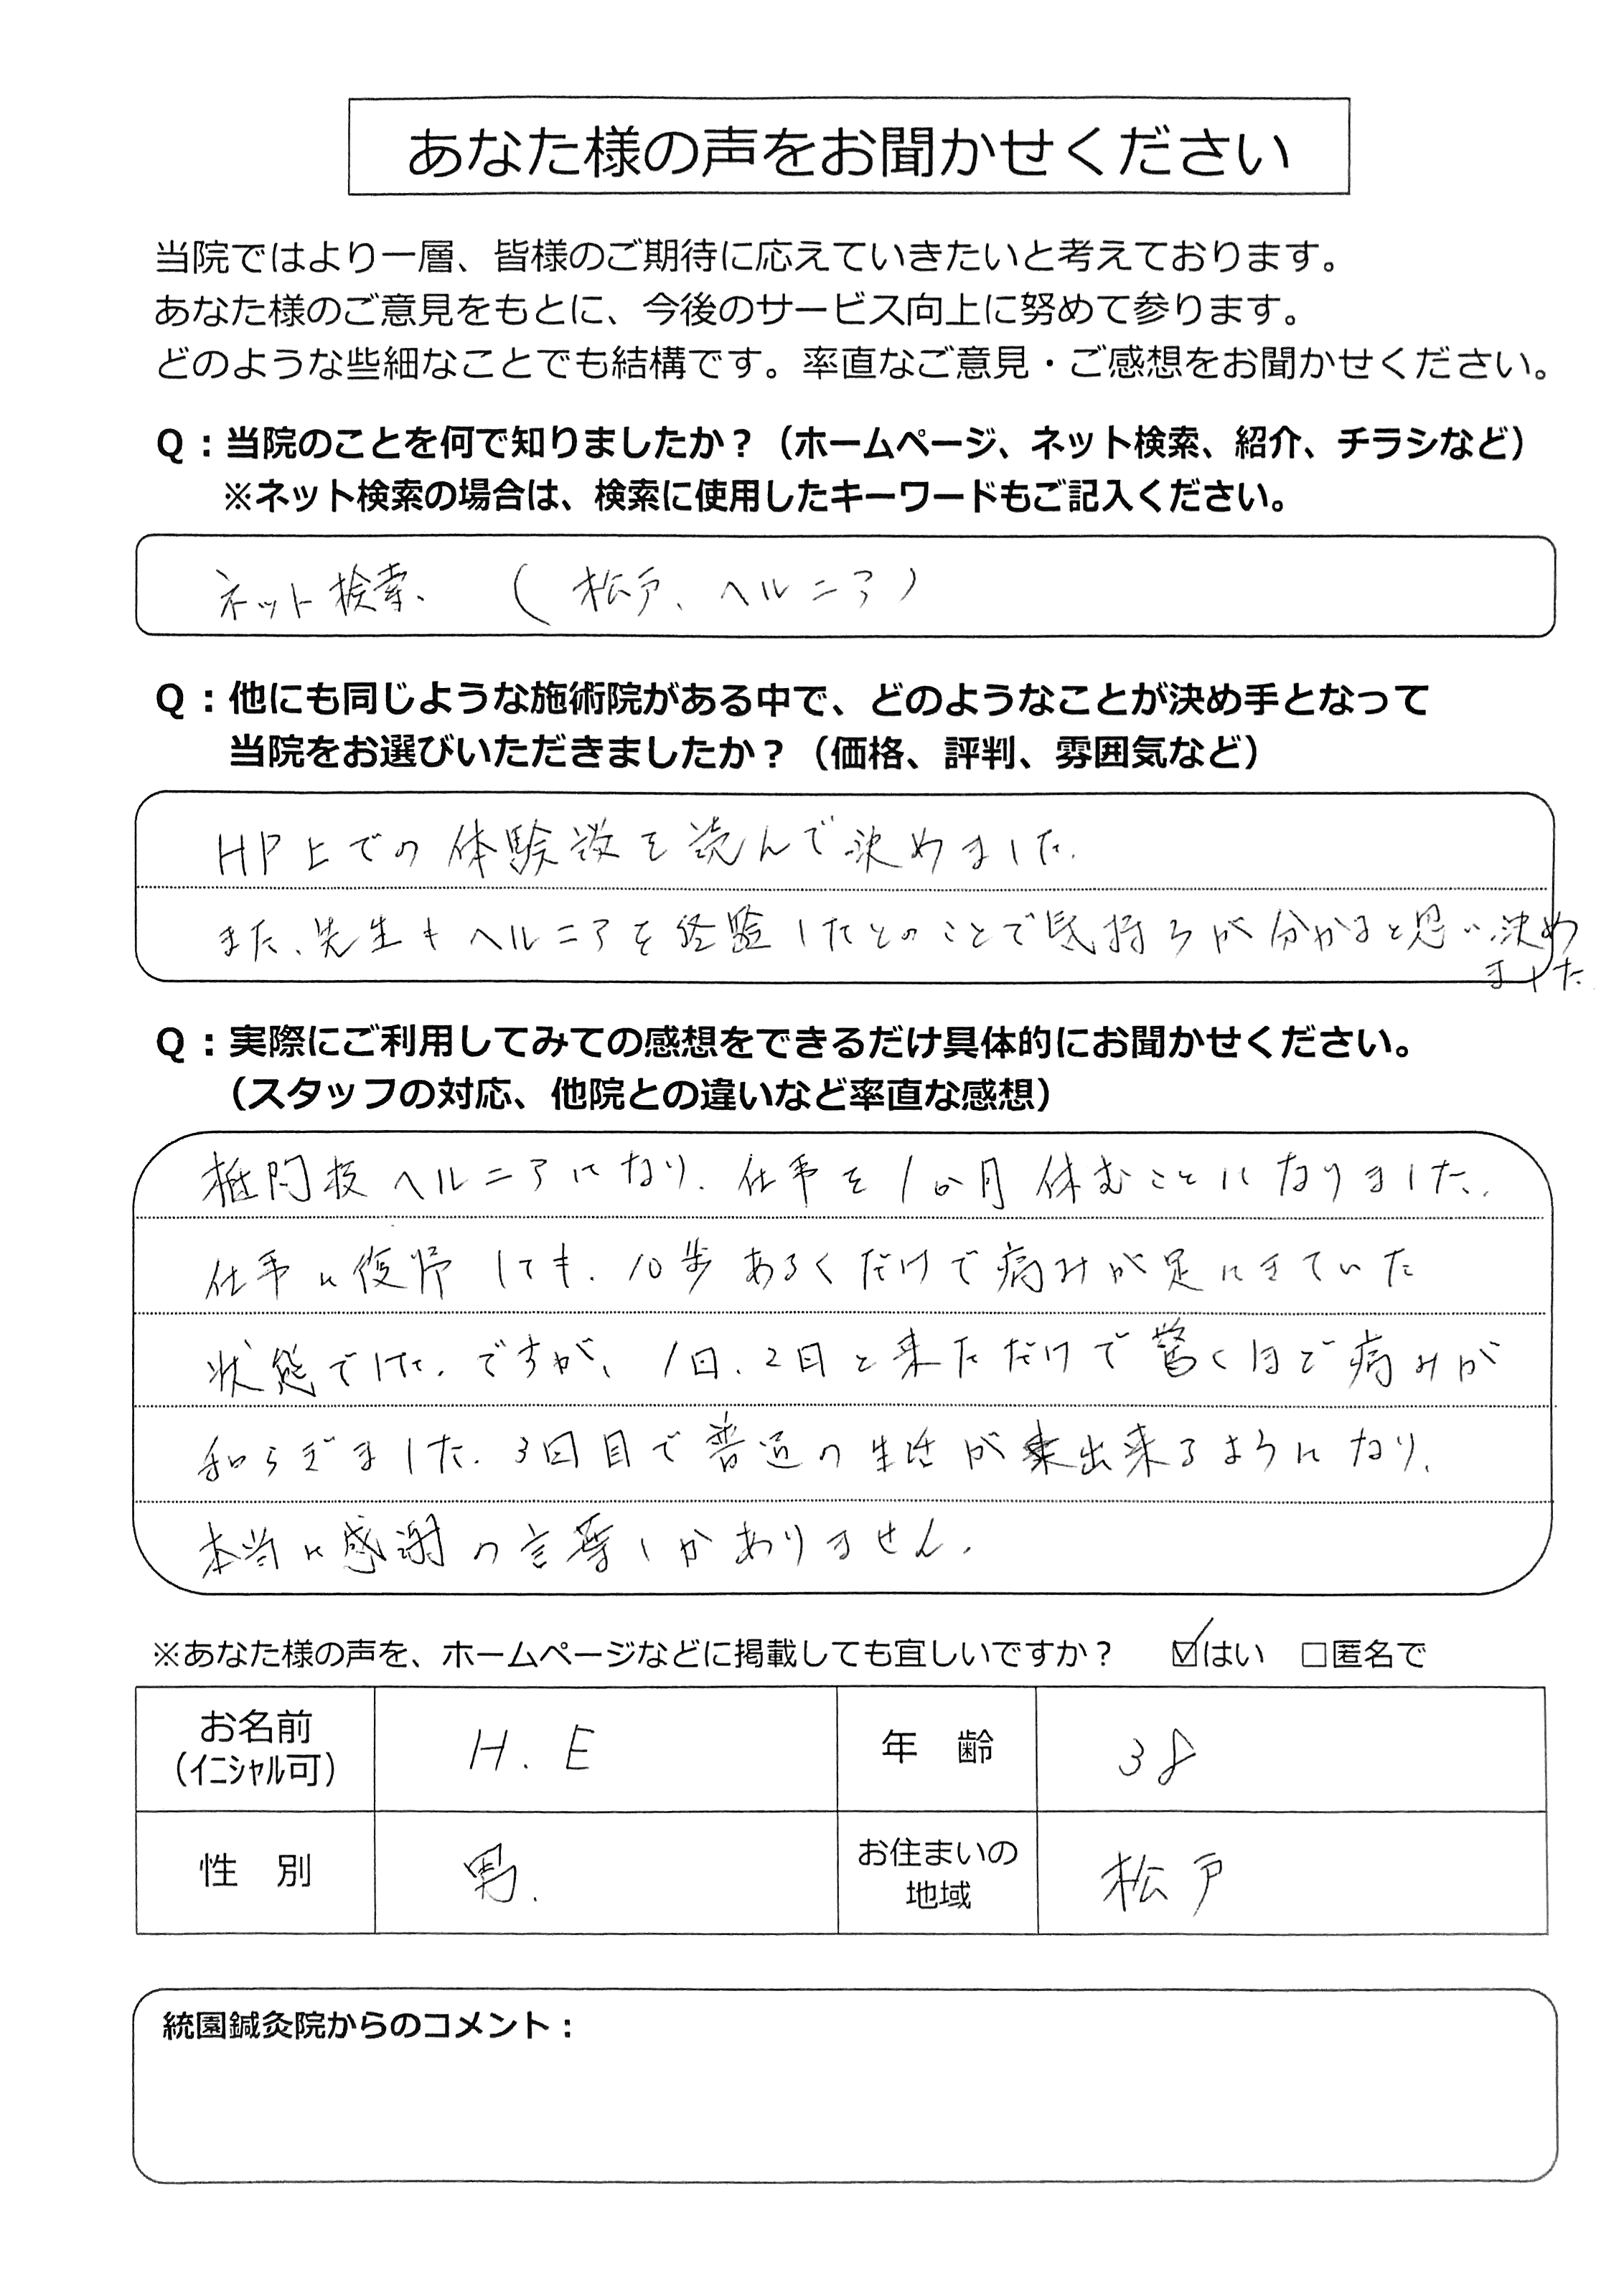 あなた様の声をお聞かせください
当院ではより一層、皆様のご期待に応えていきたいと考えております。
あなた様のご意見をもとに、今後のサービス向上に努めて参ります。
どのような些細なことでも結構です。率直なご意見・ご感想をお聞かせください。
Q：当院のことを何で知りましたか？（ホームページ、ネット検索、紹介、チラシなど）
※ネット検索の場合は、検索に使用したキーワードもご記入ください。
ネット検索、（松戸、ヘルニア）
Q：他にも同じような施術院がある中で、どのようなことが決め手となって
当院をお選びいただきましたか？（価格、評判、雰囲気など）
HP上での体験談を読んで決めました。
また、先生もヘルニアを経験したとのことで気持ちが分かると思い、決め
ました
Q：実際にご利用してみての感想をできるだけ具体的にお聞かせください。
（スタッフの対応、他院との違いなど率直な感想）
椎間板ヘルニアになり、仕事を1ヶ月休むことになりました。
仕事に復帰しても、10歩あるくだけで痛みが足にきていた
状態でした。ですが、1日、2日と来ただけで驚くほど痛みが
和らぎました。3回目で普通の生活が出来るようになり、
本当に感謝の言葉しかありません。
※あなた様の声を、ホームページなどに掲載しても宜しいですか？ ☑はい □匿名で
お名前 H.E 年　齢 38
（ｲﾆｼｬﾙ可）
性　別 男. お住まいの 松戸
地域
統園鍼灸院からのコメント：